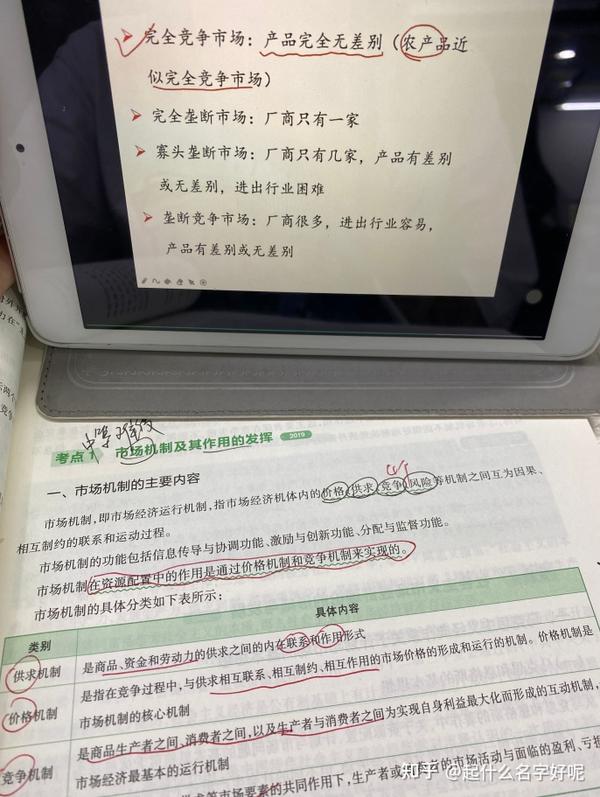 完全竞争市场：产品完全无差别（农产品近
似完全竞争市场）
完全垄断市场：厂商只有一家
寡头垄断市场：厂商只有几家，产品有差别
或无差别，进出行业困难
垄断竞争市场：厂商很多，进出行业容易，
产品有差别或无差别
考点1 市场机制及其作用的发挥 2019
一、市场机制的主要内容
市场机制，即市场经济运行机制，指市场经济机体内的价格、供求、竞争、风险等机制之间互为因果、
相互制约的联系和运动过程。
市场机制的功能包括信息传导与协调功能、激励与创新功能、分配与监督功能。
市场机制在资源配置中的作用是通过价格机制和竞争机制来实现的。
市场机制的具体分类如下表所示：
类别 具体内容
供求机制 是商品、资金和劳动力的供求之间的内在联系和作用形式
价格机制 是指在竞争过程中，与供求相互联系、相互制约、相互作用的市场价格的形成和运行的机制。价格机制是
市场机制的核心机制
竞争机制 是商品生产者之间、消费者之间，以及生产者与消费者之间为实现自身利益最大化而形成的互动机制，
市场经济最基本的运行机制
求等市场要素的共同作用下，生产者或
的市场活动与面临的盈利、亏损
知乎 @起什么名字好呢